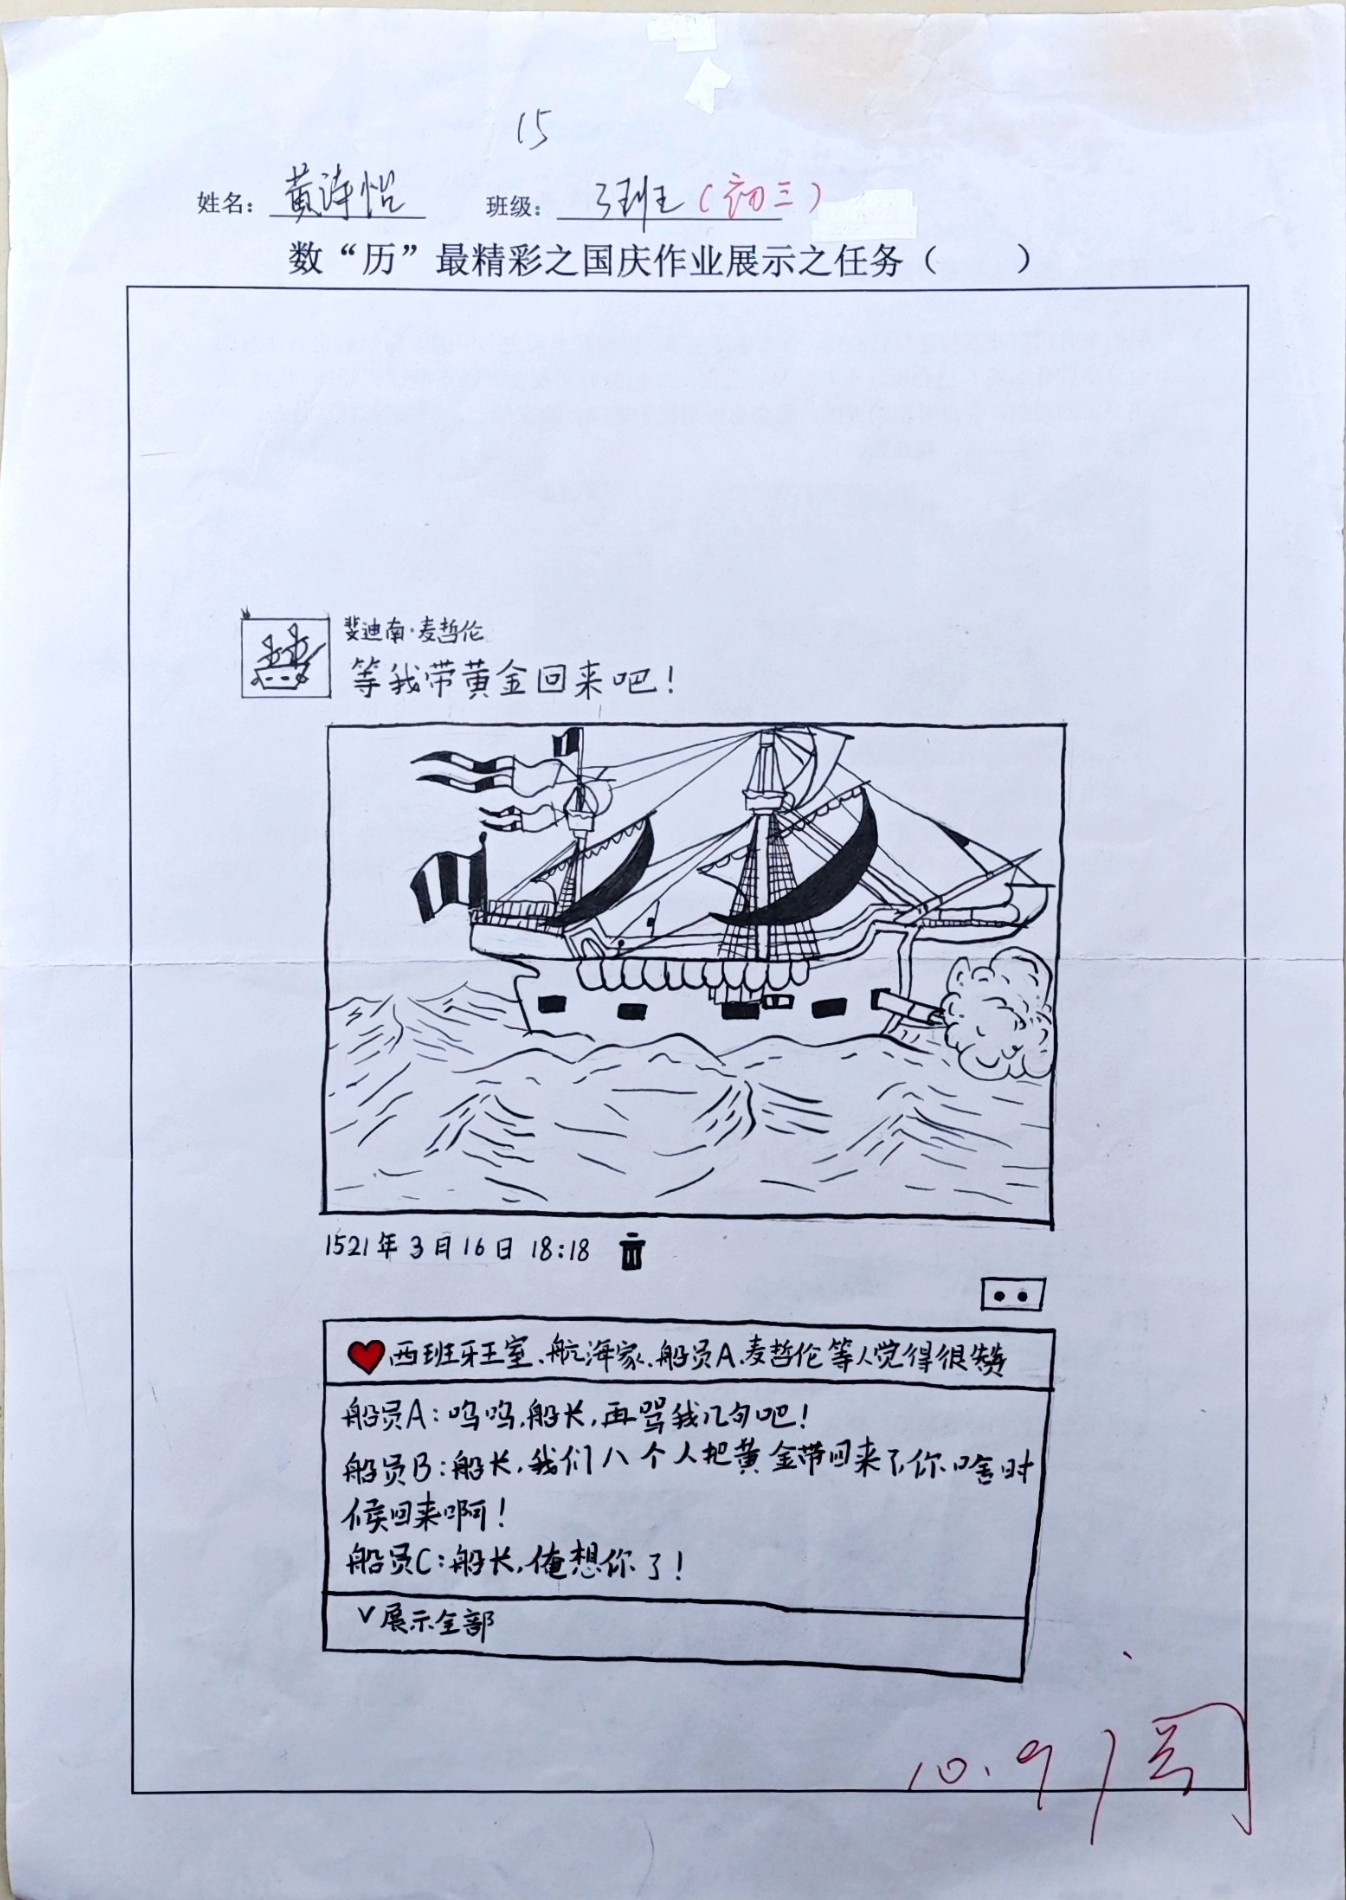 15
姓名：黄诗怡 班级：3班（初三）
数“历”最精彩之国庆作业展示之任务（ ）
斐迪南·麦哲伦
等我带黄金回来吧！
1521年3月16日 18:18
西班牙王室、航海家、船员A、麦哲伦等人觉得很赞
船员A：呜呜，船长，再骂我几句吧！
船员B：船长，我们八个人把黄金带回来了，你啥时
候回来啊！
船员C：船长，俺想你了！
∨展示全部
10.9 阅